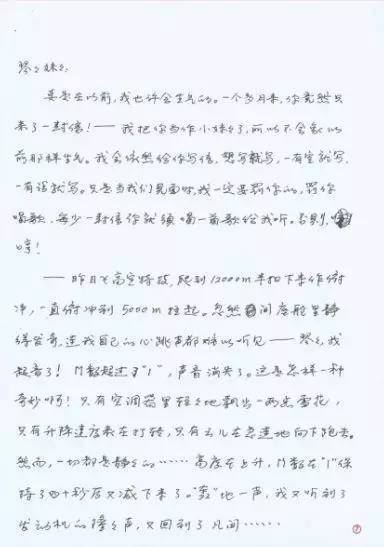 琴々妹々:
要是在以前,我也许会生气的。一个多月来,你竟然只
来了一封信!——我把你当作小妹々了,所以不会象以
前那样生气。我会依然给你写信,想写就写,一有空就写,
一有话就写。只是当我们见面时,我一定要罚你的,罚你
唱歌,每少一封信你就须唱一首歌给我听。否则,
哼!
——昨日飞高空特技,爬到12000m来扣下来作俯
冲,一直俯冲到5000m拉起。忽然间座舱里静
得出奇,连我自己的心跳声都难以听见——琴々,我
超音了!M数超过了"1",声音消失了。这是怎样一种
奇妙啊!只有空调箱里轻々地飘出一两朵雪花,
只有升降速度表在打转,只有云儿在急速地向下跑去。
然而,一切都是静々的……高度在上升,M数在"1"保
持了四十秒后又减下来了。"轰"地一声,我又听到了
发动机的隆々声,又回到了凡间……